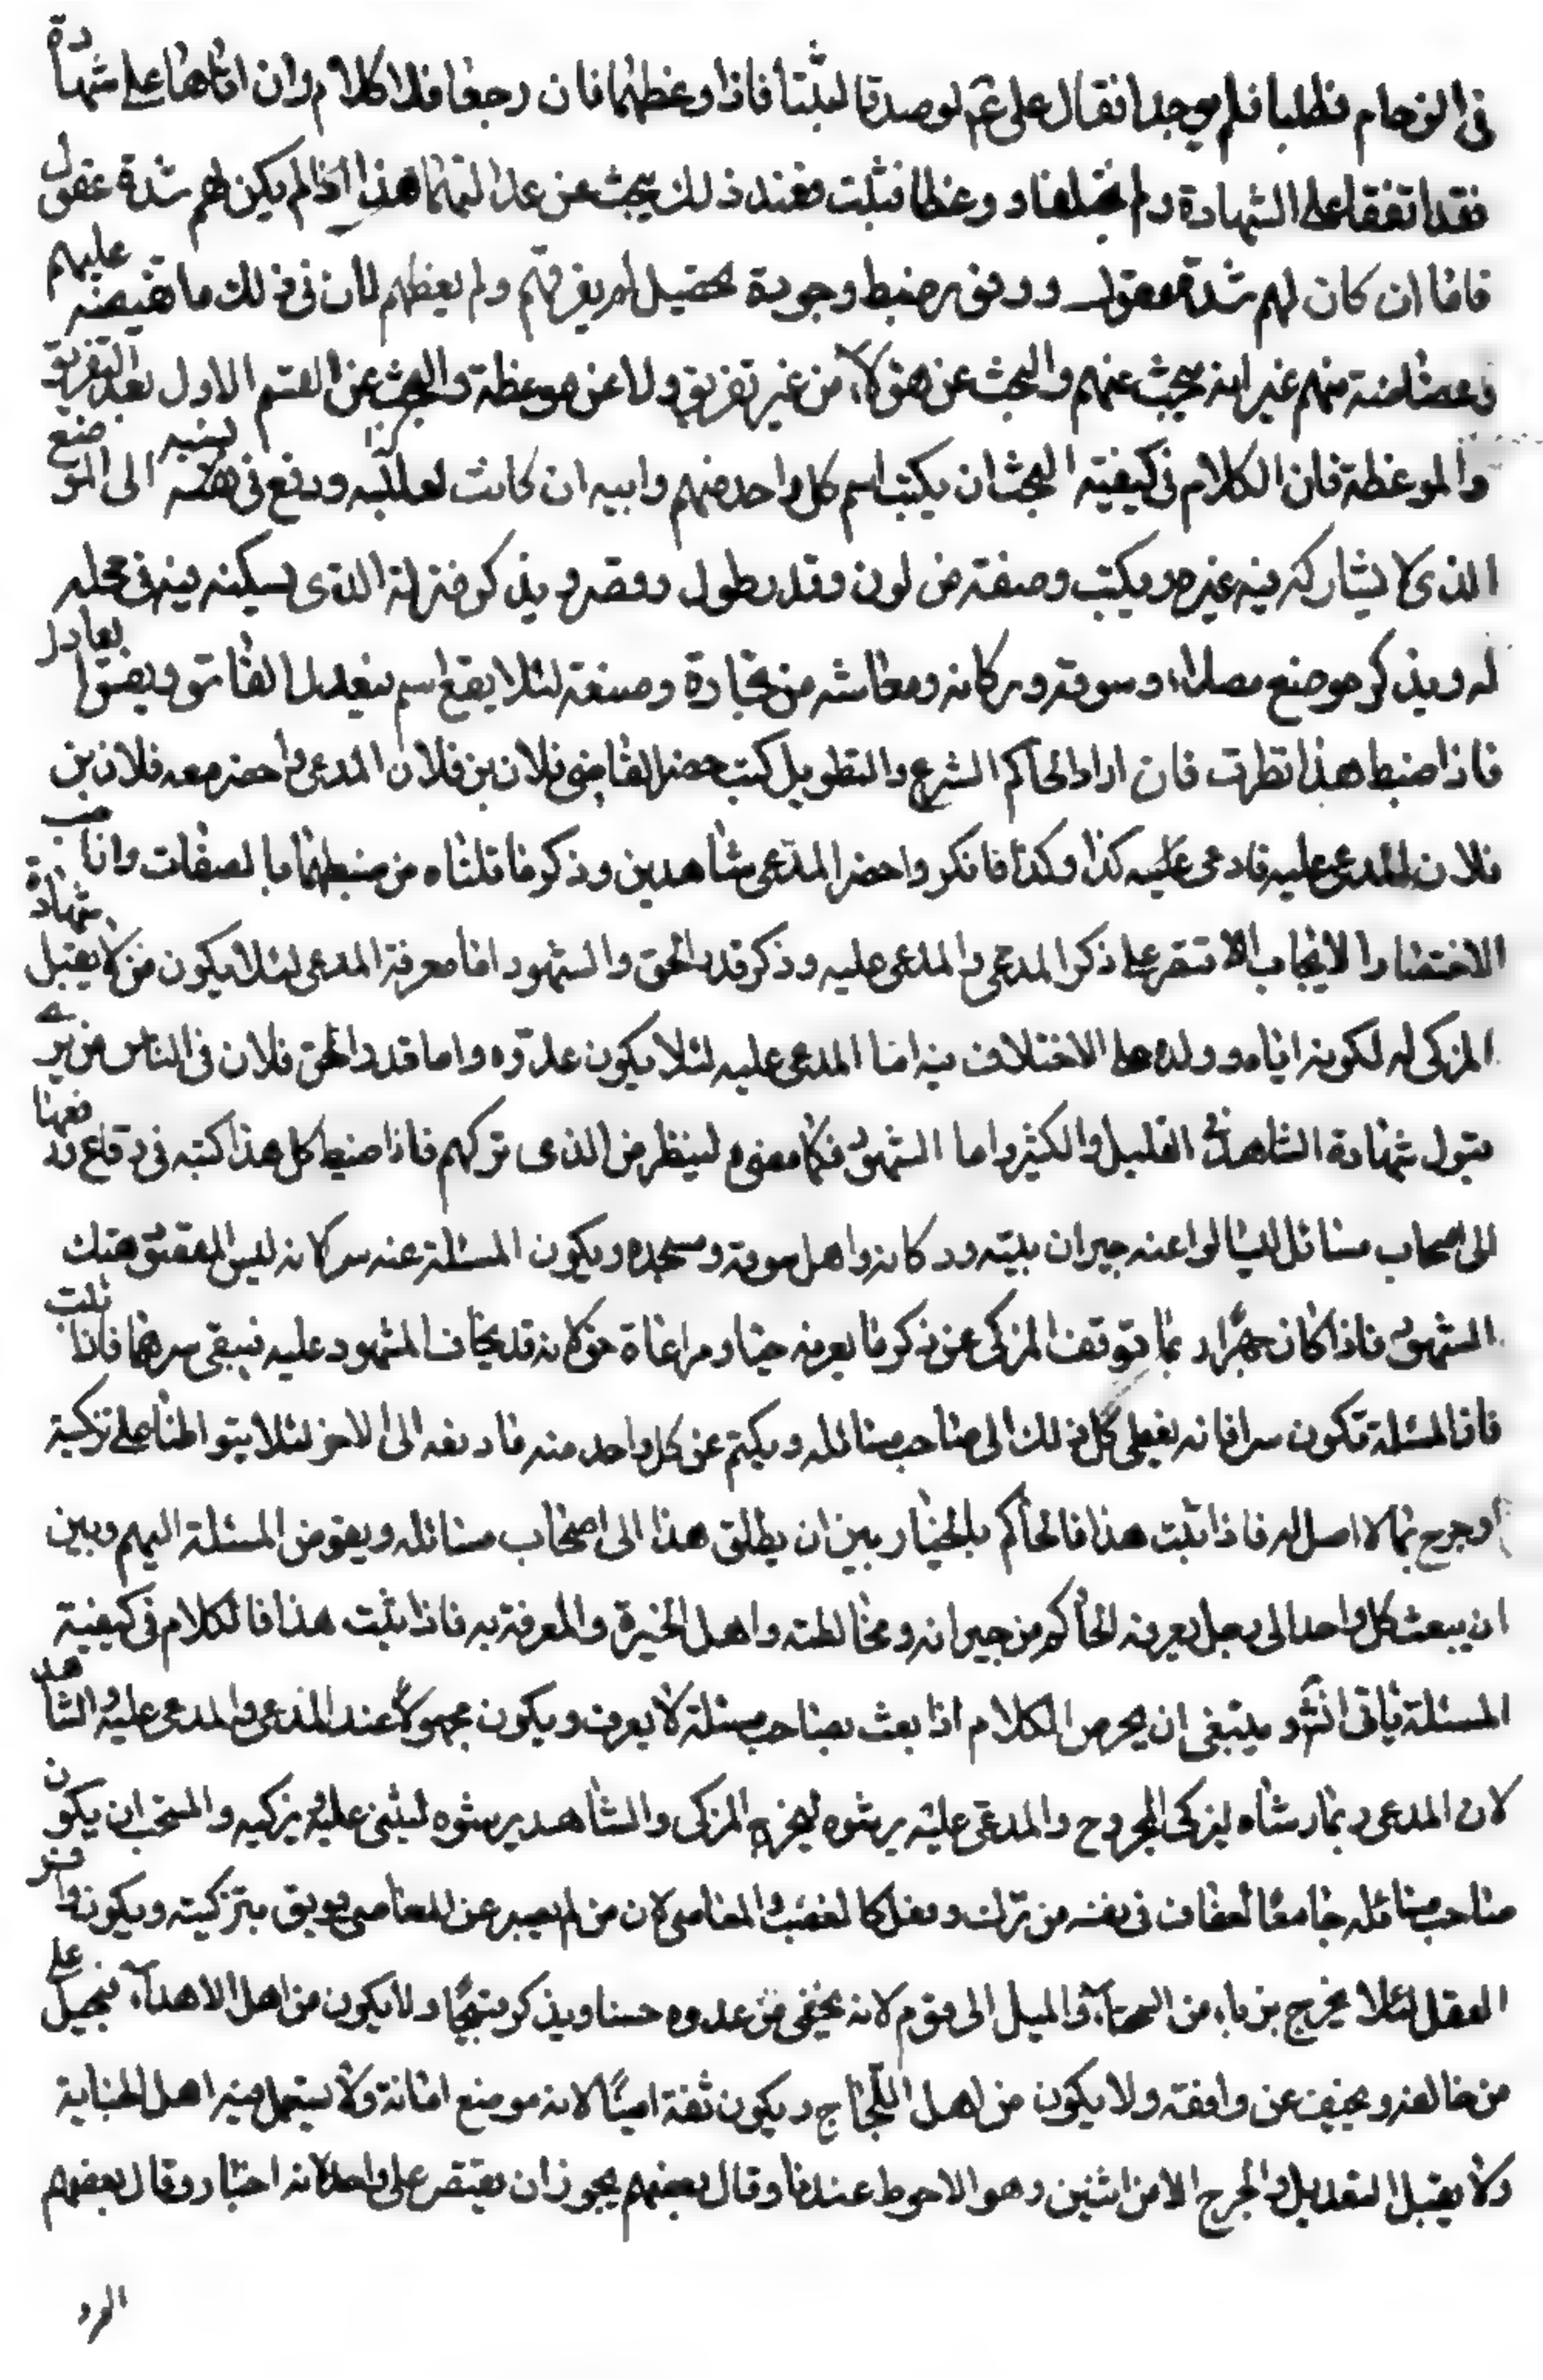 في الزحام فطلبا فلم يوجدا فقال علي عم لو صدقا لثبتا فاذا وعظهما فان رجعا فلا كلام وان اقاما على شهادة
فقد اتفقا على الشهادة ولم يختلفا و وعظا فثبتت فعند ذلك يبحث عن عدالتهما هذا اذا لم يكن لهم شدة عقول
فاما ان كان لهم شدة عقول ووفور ضبط وجودة تحصيل لم يفرقهم ولم يعظهم لان في ذلك ما نقيصة عليهم
وغضاضة منهم غير انه يبحث عنهم والبحث عن هؤلاء من غير تفريق ولا عن موعظة والبحث عن القسم الاول بعد التفريق
والموعظة فان الكلام في كيفية البحث ان يكتب اسم كل واحد منهم وابيه ان كانت لعلبه ورفع في نسبه الى الموضع
الذي لا يشاركه فيه غيره ويكتب وصفته من لون وقدر طول وقصر ويذكر منزلة الذي يسكنه فيه في محله
له ويذكر موضع مصلاه وسوقه ودكانه ومعاشه من تجارة وصنعة لئلا يقع اسم فيعدل الفاسق ويفسق العادل
فاذا ضبط هذا نظرت فان اراد الحاكم الشرع والتطويل كتب حضر القاضي فلان بن فلان المدعي واحضر معه فلان بن
فلان المدعى عليه فادعى عليه كذا وكذا فانكر واحضر المدعي شاهدين وذكر ما قلناه من ضبطهما بالصفات وان احب
الاختصار والايجاب اقتصر على ذكر المدعي والمدعى عليه وذكر قدر الحق والشهود اما معرفة المدعي لئلا يكون ممن لا يقبل شهادة
المزكي له لكونه اباه وولده على الاختلاف فيه اما المدعى عليه لئلا يكون عدوه واما قدر الحق فلان في الناس من يرى
قبول شهادة الشاهد في القليل والكثير واما الشهود فكا معنوم لينظر من الذي تركهم فاذا ضبط كل هذا كتبه في رقاع ودفعها
الى اصحاب مسائل ليسالوا عنه جيران بيته ودكانه واهل سوقه ومسجده ويكون المسئلة عنه سرا لانه ليس المقصود هتك
الشهود فاذا كان جهرا ربما توقف المزكي عن ذكر ما يعرفه حياء ومراعاة حق لانه قد يخاف المشهود عليه فيبقى سرهما فاذا ثبت
فاذا المسئلة تكون سرا فانه يعطي كل ذلك الى صاحب مسائله ويكتم عن كل واحد منه ما دفعه الى الاخر لئلا يتواطئا على تزكية
او جرح بما لا اصل له فاذا ثبت هذا فالحاكم بالخيار بين ان يطلق هذا الى اصحاب مسائله ويفوض المسئلة اليهم وبين
ان يبعث كل واحد الى رجل يعرفه الحاكم من جيرانه ومخالطته واهل الخبرة والمعرفة به فاذا ثبت هذا فالكلام في كيفية
المسئلة ياتي انش و ينبغي ان يحرص الكلام اذا بعث بصاحب مسئلة لا يعرف ويكون مجهولا عند المدعي والمدعى عليه والشاهد
لان المدعي ربما رشاه ليزكي المجروح والمدعى عليه يرشوه ليجرح المزكى والشاهد يرشوه ليثني عليه ويزكيه والمستحب ان يكون
صاحب مسائله جامعا لعفاف في نفسه من ترك وفعل كالغضب والمعاصي لان من لم يصبر عن المعاصي يوثق بتزكيته ويكون وافر
العقل لئلا يخرج بزيا من العداء والميل الى قوم لانه يخفي من عدوه حسنا ويذكر قبيحا ولا يكون من اهل الاهداء فيحيل على
من خالفه ويحيف عن وافقه ولا يكون من اهل اللجاج ويكون ثقة امينا لانه موضع امانة ولا يستعمل فيه اهل الخيانة
ولا يقبل التعديل والجرح الا من اثنين وهو الاحوط عندنا وقال بعضهم يجوز ان يقتصر على واحد لانه اخبار وقال بعضهم